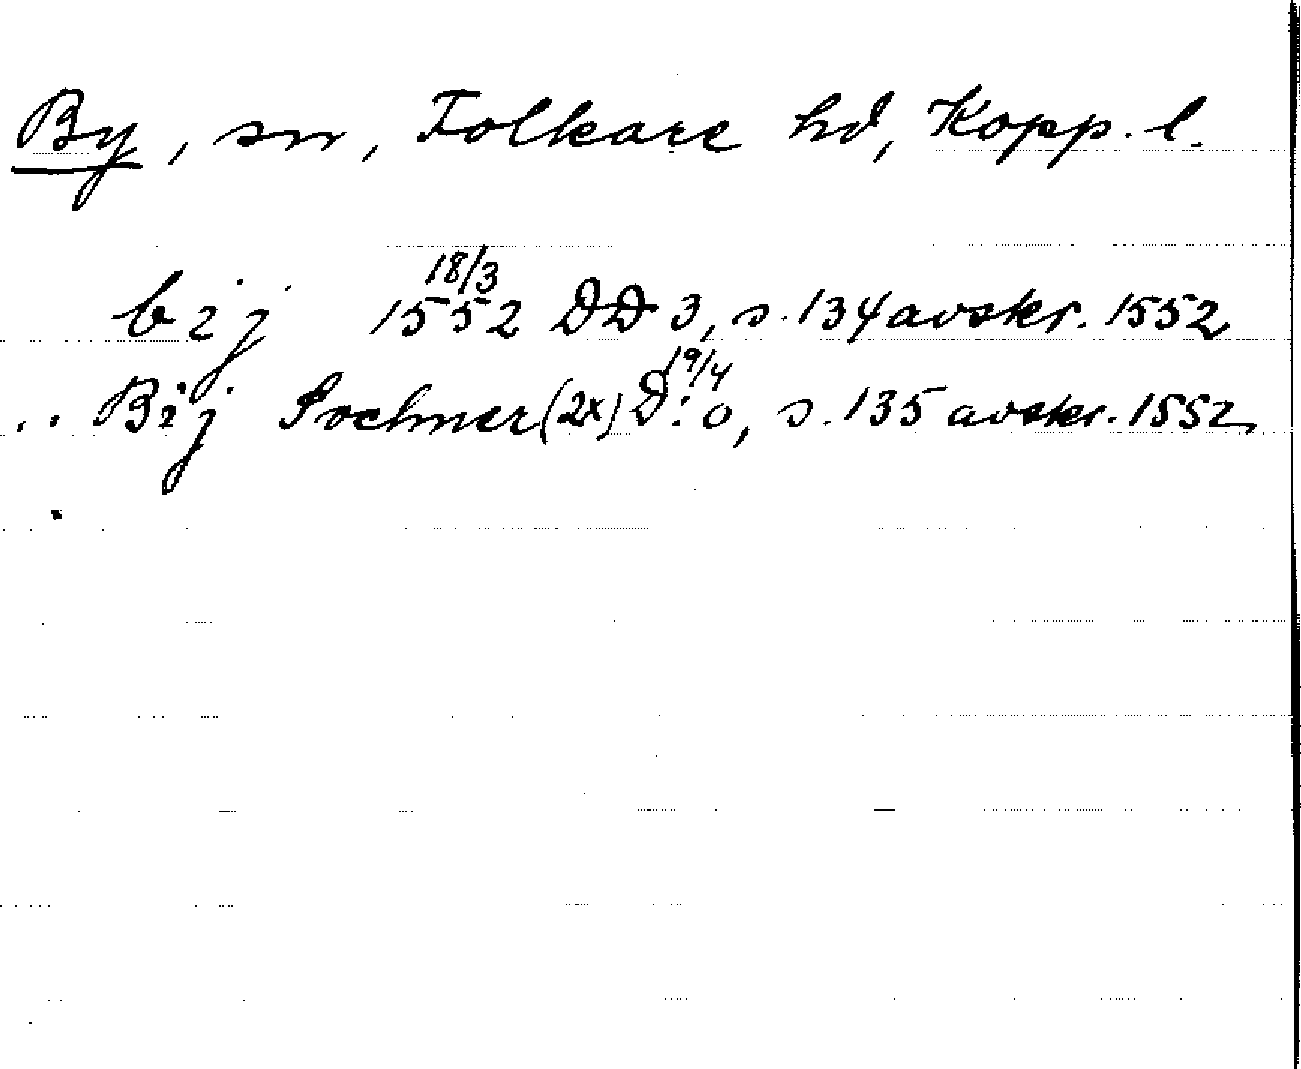 By, sn, Folkare hd, Kopp. l.
bij 18/3 1552 DD 3, s. 134 avskr. 1552
.. Bij Sochner (2x) 19/4 D:o, s. 135 avskr. 1552